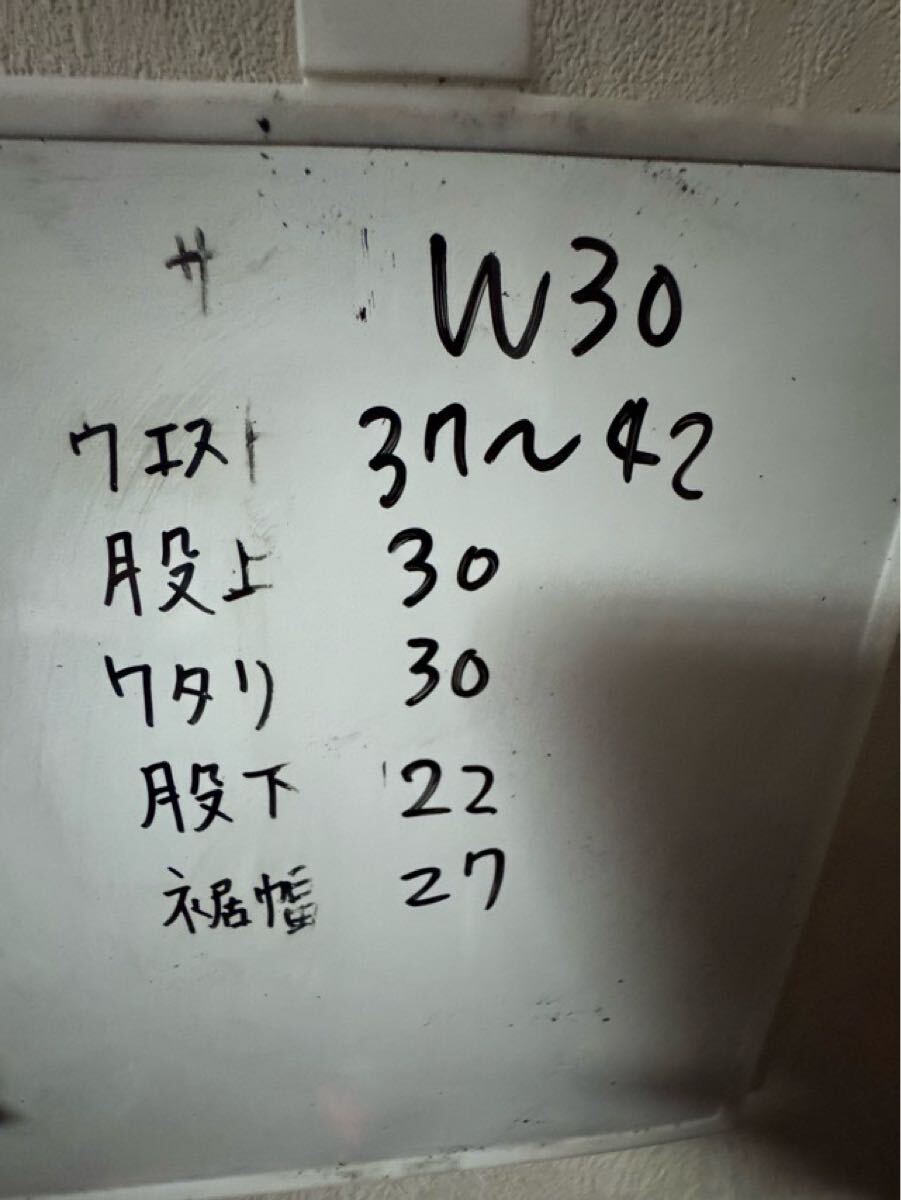 サ W30
ウエスト 37～42
股上 30
ワタリ 30
股下 22
裾幅 27